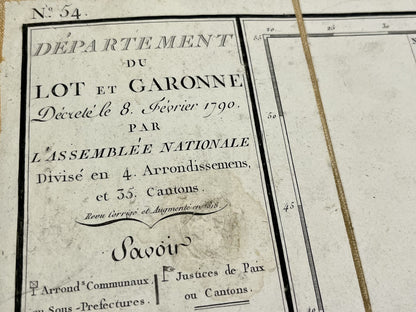 N.º 54.
DÉPARTEMENT
DU
LOT ET GARONNE
Décreté le 8. Février 1790.
PAR
L'ASSEMBLÉE NATIONALE
Divisé en 4. Arrondissemens,
et 35. Cantons.
Revu Corrigé et Augmenté en 1818
Savoir
Arrond.ˢ Communaux,
ou Sous-Prefectures.
Justices de Paix
ou Cantons.
85
50
45